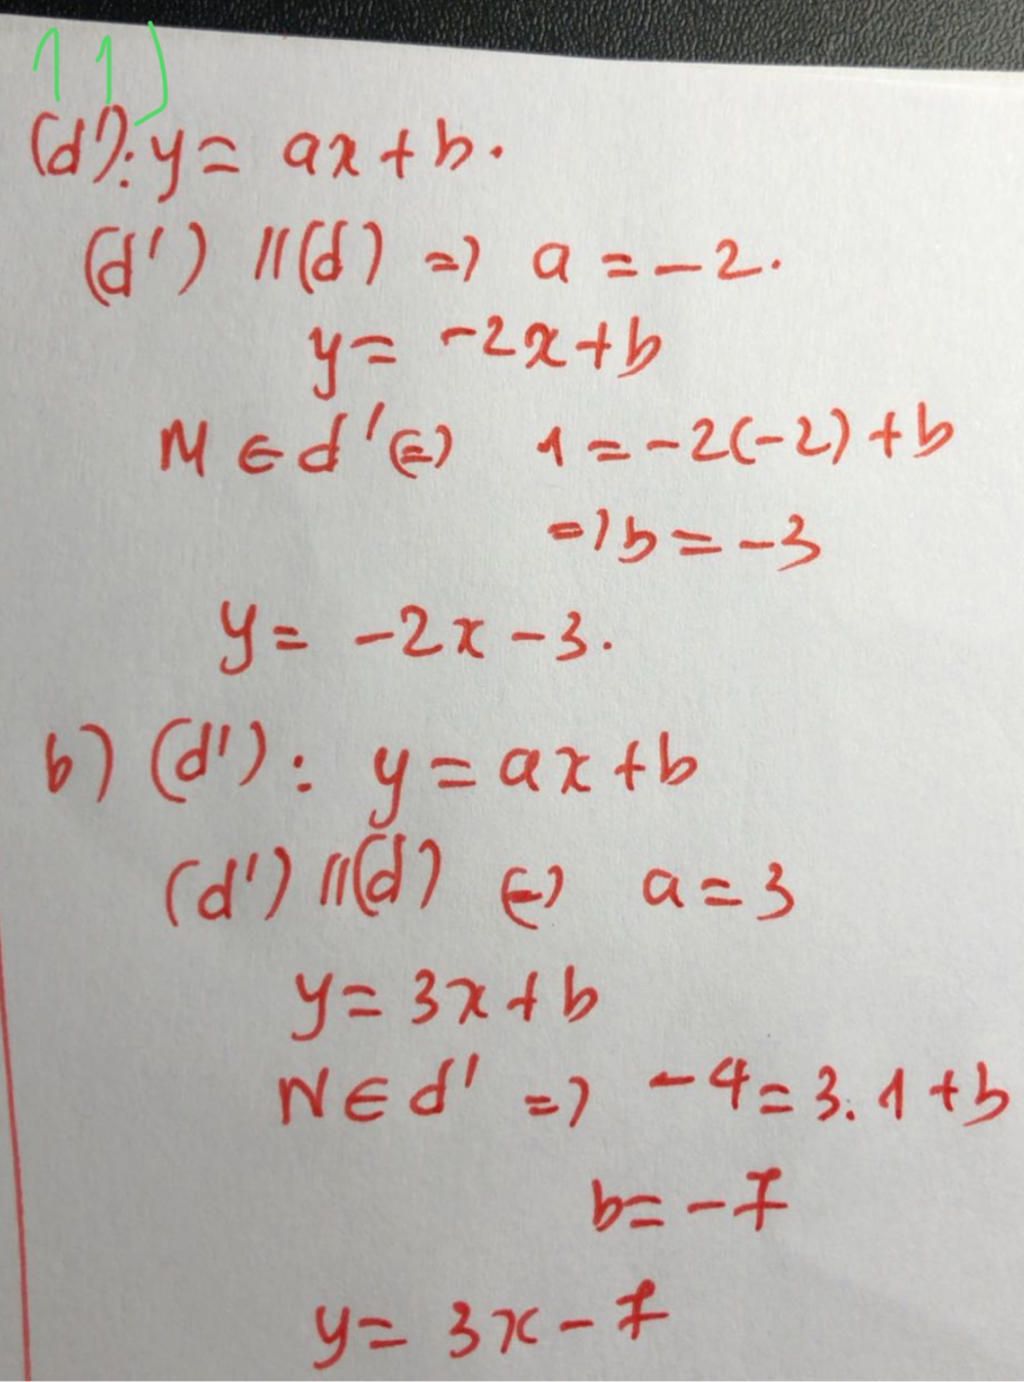 11)
(d'): y = ax + b.
(d') // (d) => a = -2.
y = -2x + b
M ∈ d' <=> 1 = -2(-2) + b
=> b = -3
y = -2x - 3.
b) (d'): y = ax + b
(d') // (d) <=> a = 3
y = 3x + b
N ∈ d' => -4 = 3.1 + b
b = -7
y = 3x - 7